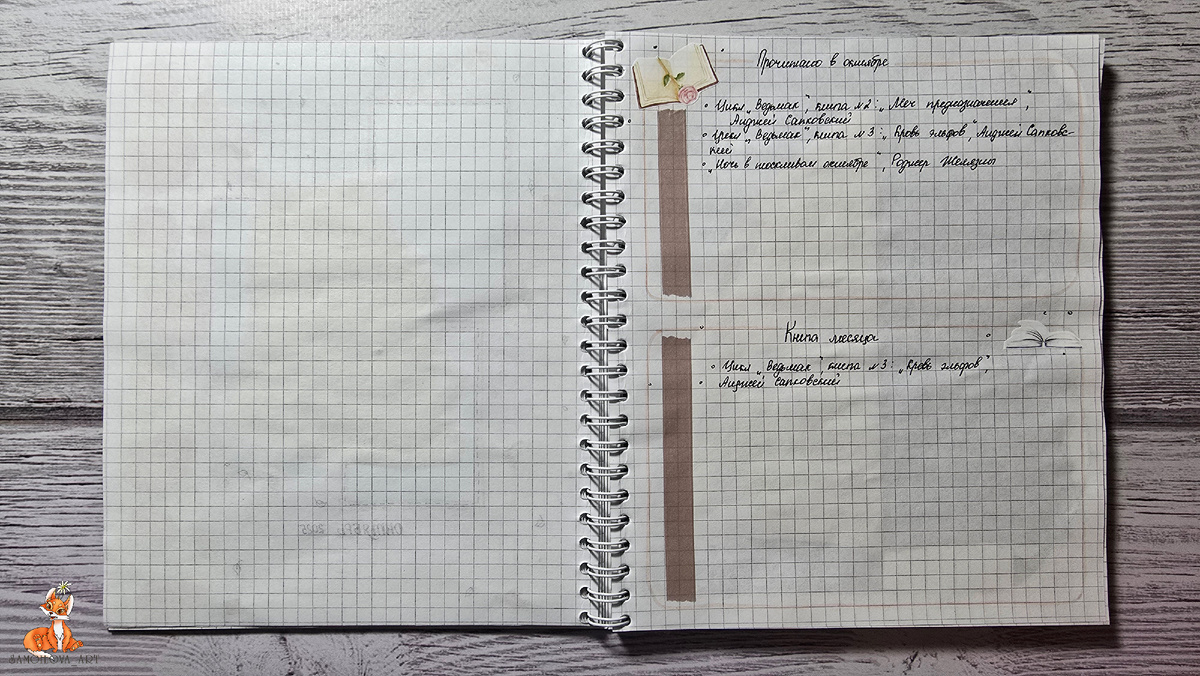 Прочитано в октябре
• Цикл „Ведьмак", книга №2: „Меч предназначения",
Анджей Сапковский
• Цикл „Ведьмак", книга №3: „Кровь эльфов", Анджей Сапковс-
кий
• „Ночь в тоскливом октябре", Роджер Желязны
Книга месяца
• Цикл „Ведьмак", книга №3: „Кровь эльфов",
• Анджей Сапковский
ОКТЯБРЬ 2025
SAMOILOVA_ART